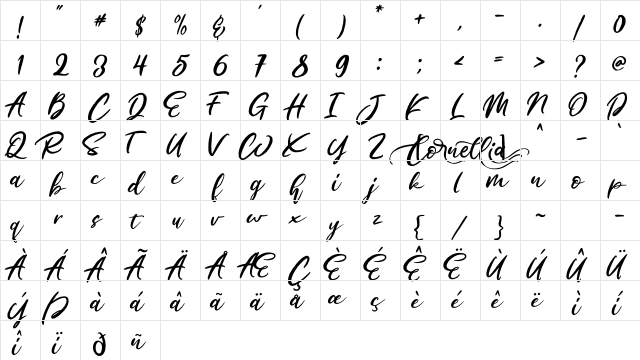 ! " # $ % & ' ( ) * + , - . / 0
1 2 3 4 5 6 7 8 9 : ; < = > ? @
A B C D E F G H I J K L M N O P
Q R S T U V W X Y Z Kornellia ^ _ `
a b c d e f g h i j k l m n o p
q r s t u v w x y z { / } ~ -
À Á Â Ã Ä Å Æ Ç È É Ê Ë Ù Ú Û Ü
Ý Þ à á â ã ä å æ ç è é ê ë ì í
î ï ð ñ